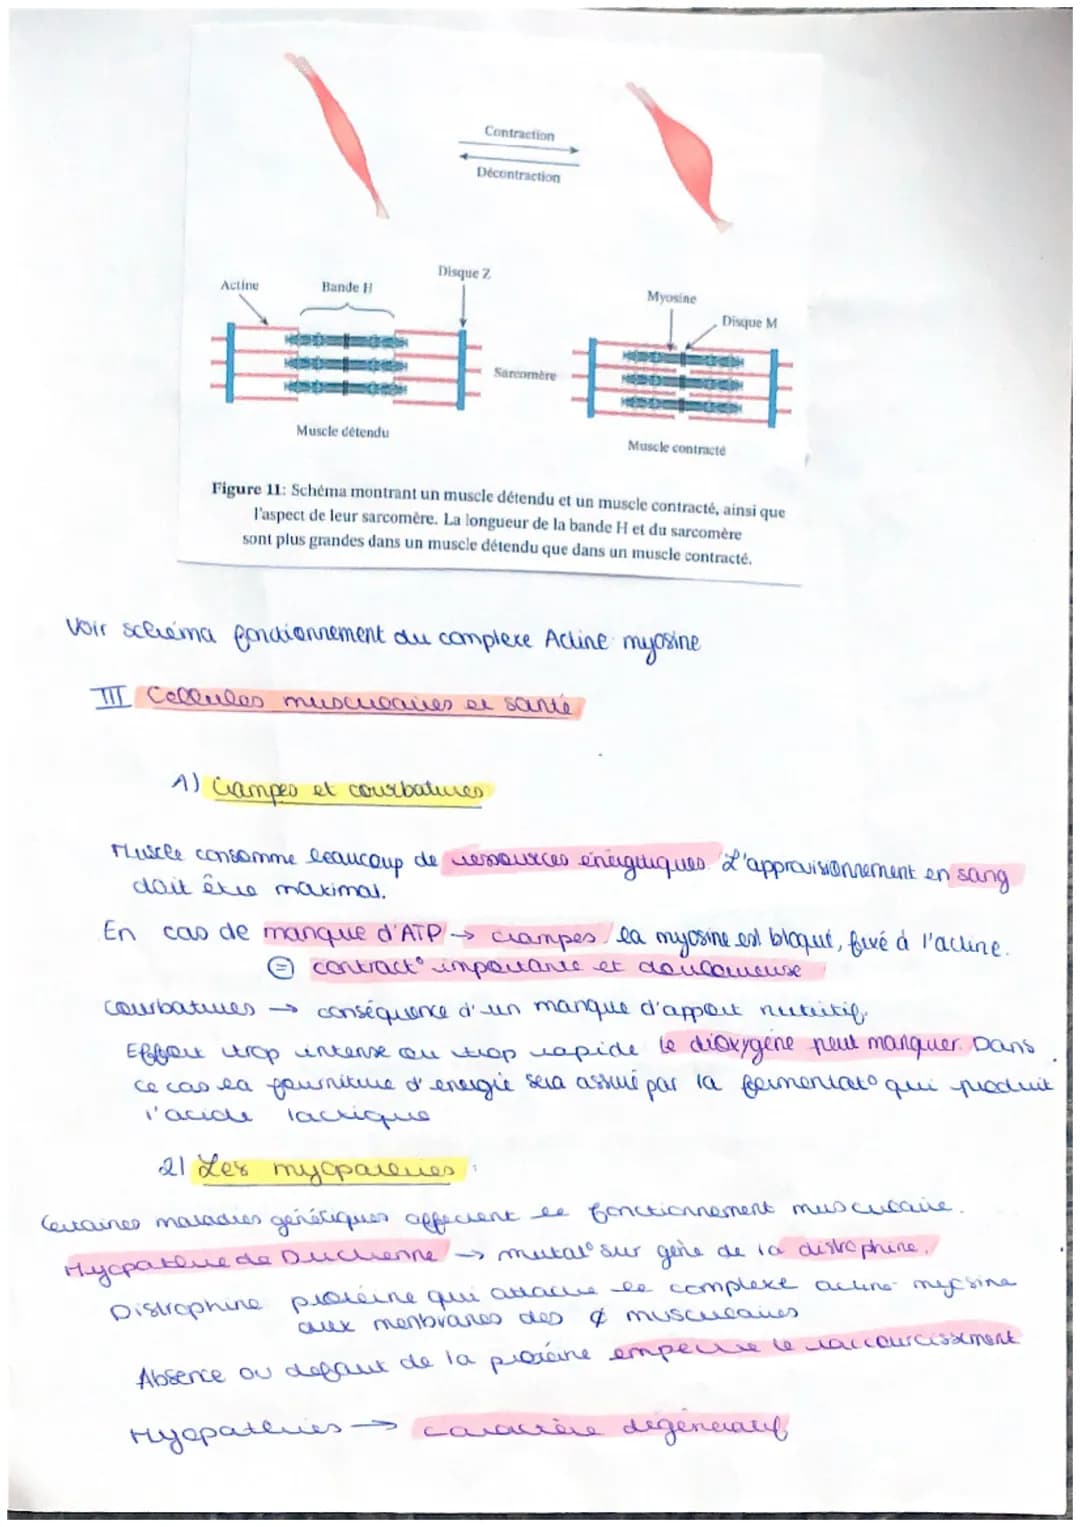 Contraction
Décontraction
Actine
Bande H
Disque Z
Myosine
Disque M
Sarcomère
Muscle détendu
Muscle contracté
Figure 11: Schéma montrant un muscle détendu et un muscle contracté, ainsi que
l'aspect de leur sarcomère. La longueur de la bande H et du sarcomère
sont plus grandes dans un muscle détendu que dans un muscle contracté.
Voir schéma fonctionnement du complexe Actine myosine
III Cellules musculaires et santé
1) Crampes et courbatures
Muscle consomme beaucoup de ressources énergétiques. L'approvisionnement en sang
doit être maximal.
En cas de manque d'ATP → crampes, la myosine est bloqué, fixé à l'actine.
= contract° importante et douloureuse
Courbatures → conséquence d'un manque d'apport nutritif.
Effort trop intense ou trop rapide le dioxygène peut manquer. Dans
ce cas la fourniture d'énergie sera assuré par la fermentat° qui produit
l'acide lactique
2) Les myopathies :
Certaines maladies génétiques affectent le fonctionnement musculaire.
Myopathie de Duchenne → mutat° sur gène de la distrophine.
Distrophine protéine qui attache le complexe actine-myosine
aux menbranes des ¢ musculaires
Absence ou defaut de la protéine empêche le raccourcissement
Myopathies → caractère dégénératif